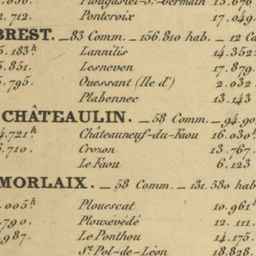 2.712. Pontcroix 17.049.
BREST. _ 83 Comm. _ 156.810 hab. _ 12 Ca
5.183ʰ Lannilis 14.352.
5.851. Lesneven 17.879.
5.795. Ouessant (Ile d') 2.032
Plabennec 13.143
CHÂTEAULIN. _ 58 Comm. _ 94.90
4.721ʰ Châteauneuf-du-Faou 16.030ʰ
5.710. Crozon 13.767.
Le Faou 6.123
MORLAIX. _ 58 Comm. _ 131.580 hab
.005ʰ Plouescat 10.961ʰ
.790. Plouzévédé 12.111.
.987. Le Ponthou 14.175.
Sᵗ Pol-de-Léon 18.828.